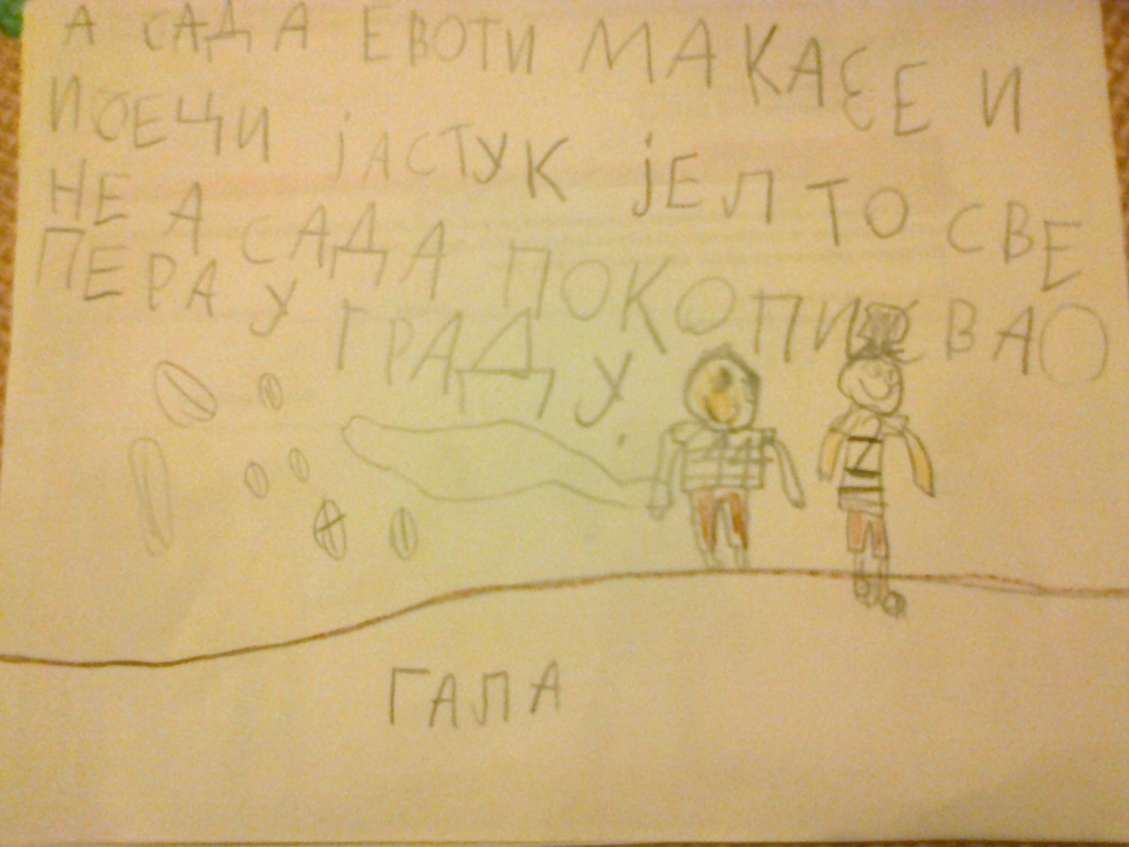 А САДА ЕВОТИ МАКАЗЕ И
ИСЕЧИ јАСТУК јЕЛ ТО СВЕ
НЕ А САДА
ПЕРА У ГРАДУ.
ГАЛА